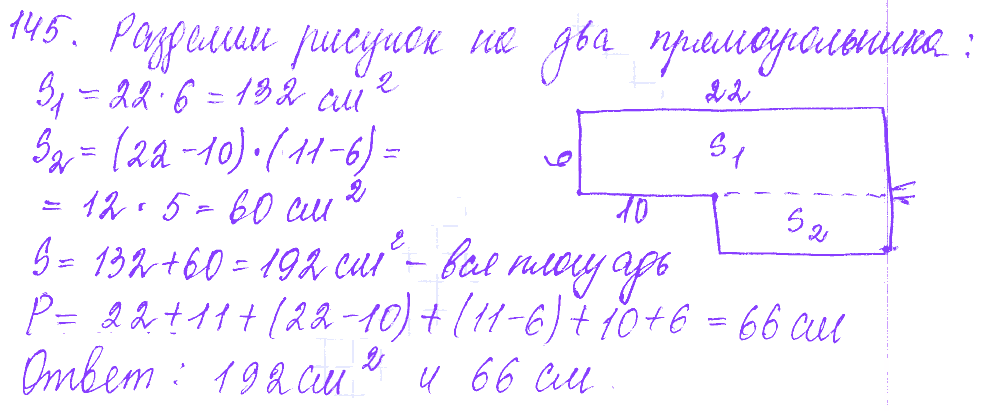 145. Разделим рисунок на два прямоугольника:
S₁ = 22 · 6 = 132 см²
S₂ = (22 - 10) · (11 - 6) =
= 12 · 5 = 60 см²
S = 132 + 60 = 192 см² - вся площадь
P = 22 + 11 + (22 - 10) + (11 - 6) + 10 + 6 = 66 см
Ответ: 192 см² и 66 см.
22
6
S₁
10
S₂